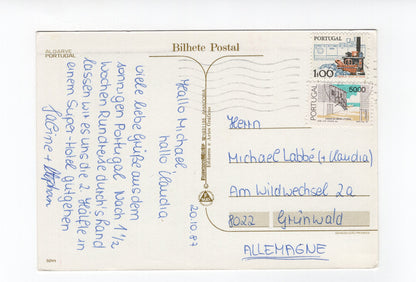 ALGARVE
PORTUGAL
Bilhete Postal
PORTUGAL
1$00
PORTUGAL
5000
20.10.87
Hallo Michael,
hallo Claudia.
viele liebe Grüße aus dem
sonnigen Portugal. Nach 1 1/2
Wochen Rundreise durch's Land
lassen wir es uns die 2. Hälfte in
einem Super-Hotel gutgehen
Sabine + Stephan
Herrn
Michael Labbé (+ Claudia)
Am Wildwechsel 2a
8022 Grünwald
ALLEMAGNE